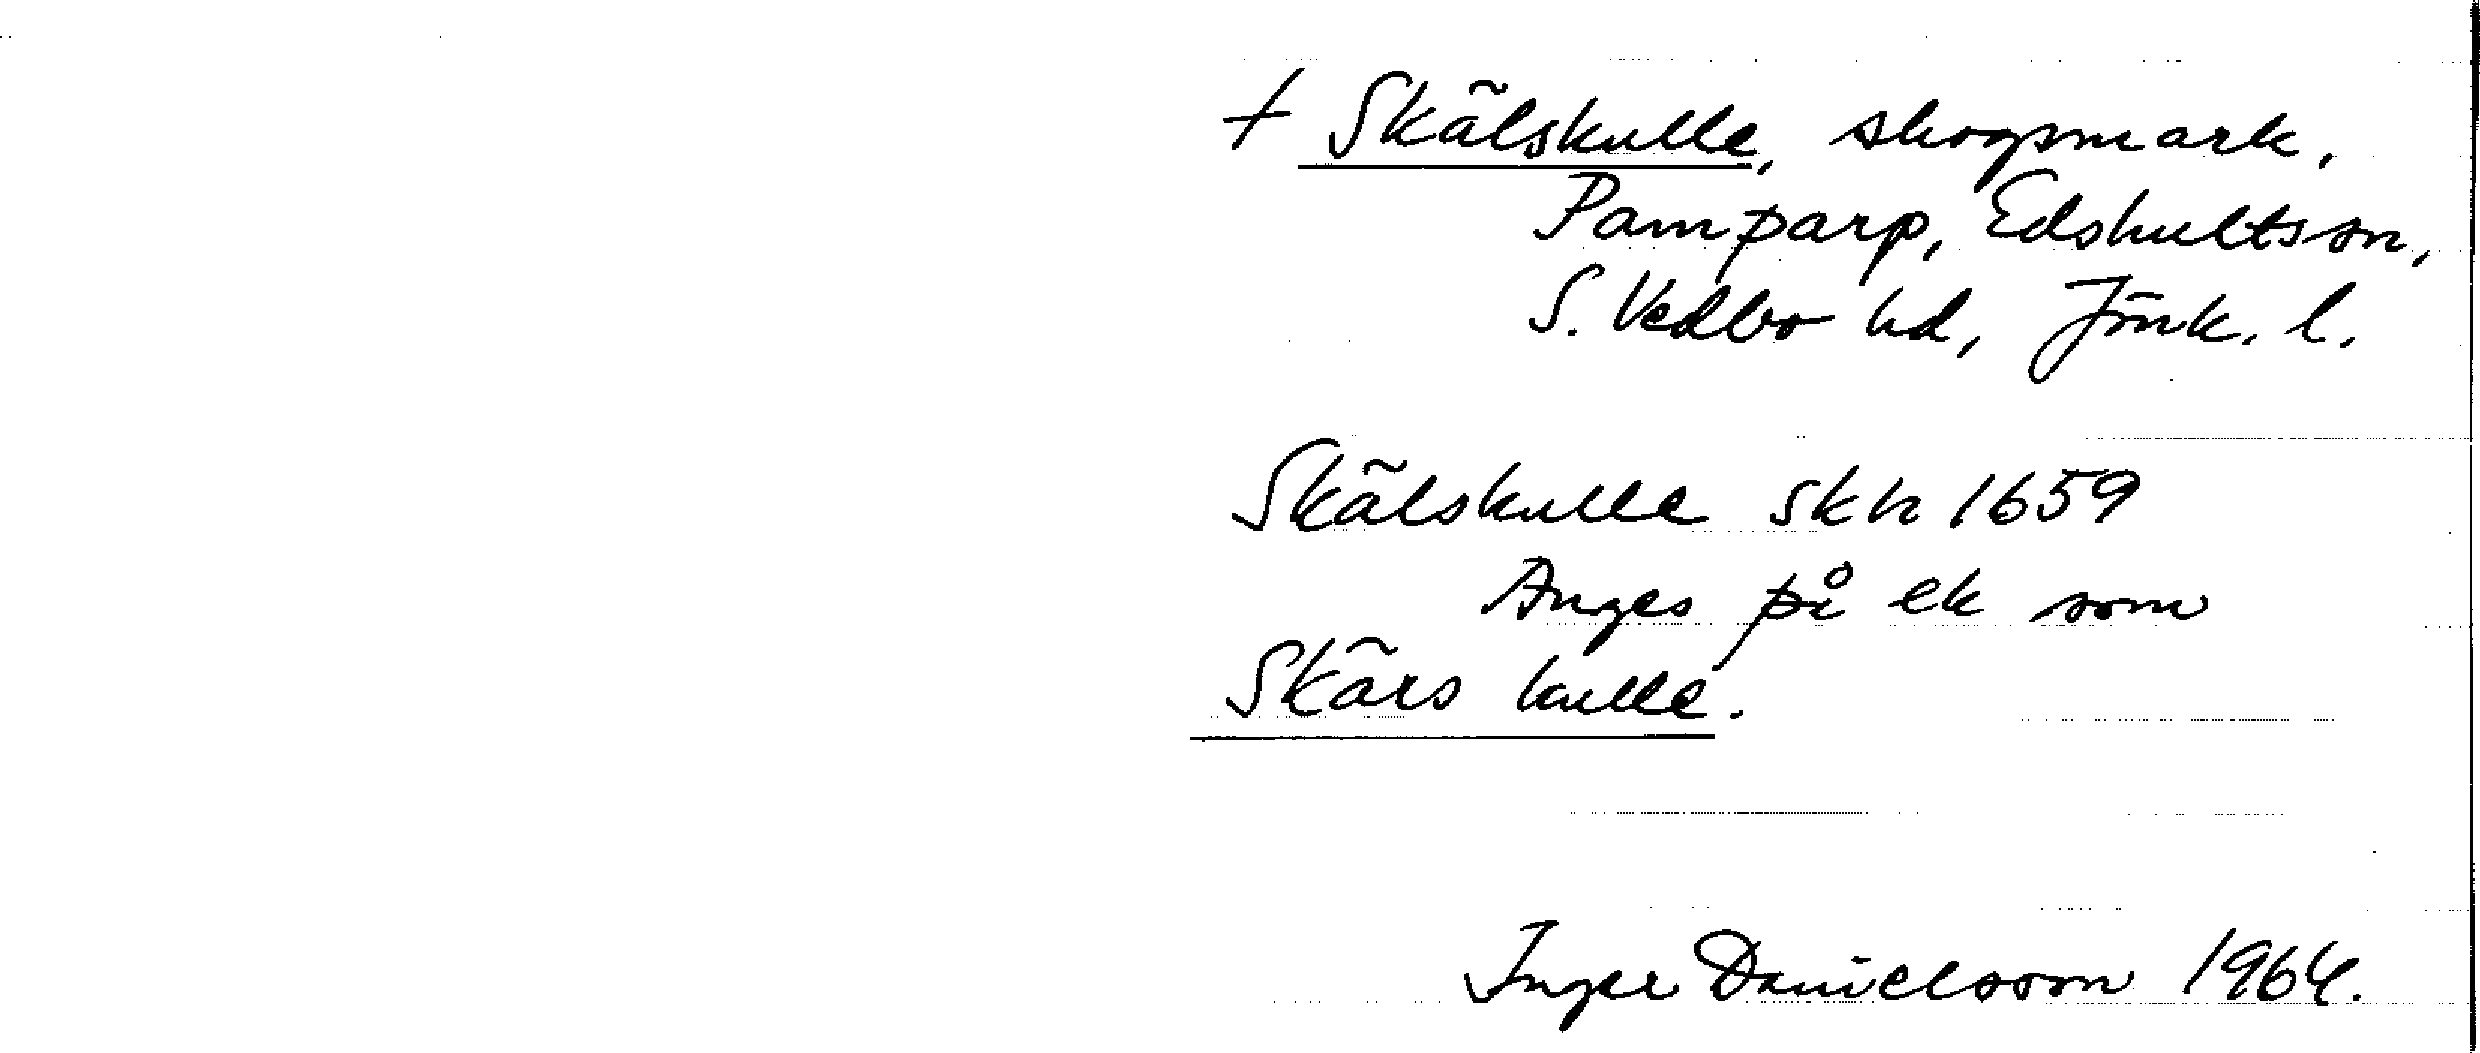 + Skälskulle, skogsmark,
Pamparp, Edshults sn,
S. Vedbo hd, Jönk. l.
Skälskulle skh 1659
Anges på ek som
Skärs kulle.
Inger Danielsson 1964.